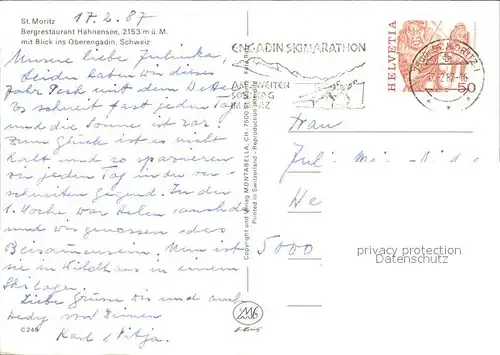 St. Moritz 17.2.87
Bergrestaurant Hahnensee, 2153 m ü. M.
mit Blick ins Oberengadin, Schweiz
Unsere liebe
Leider haben wir dieses
Jahr Pech mit dem
Es schneit fast jeden Tag
und die Sonne ist rar.
Zum Glück ist es nicht
kalt und so spazieren
wir jeden Tag in der ver-
schneiten Gegend. In der
1. Woche war Helen auch da
und wir genossen das
Beisammensein. Nun ist
sie in Wildhaus in einem
Skilager.
Liebe Grüsse Dir und auch
Hedy von Deinen
Karl &
C 249
Copyright und Verlag MONTABELLA, CH-7500 St. Moritz
Printed in Switzerland - Reproduktion
ENGADIN SKIMARATHON
AM ZWEITEN
SONNTAG
IM MÄRZ
HELVETIA
50
ST. MORITZ 1
Frau
5000
privacy protection
Datenschutz